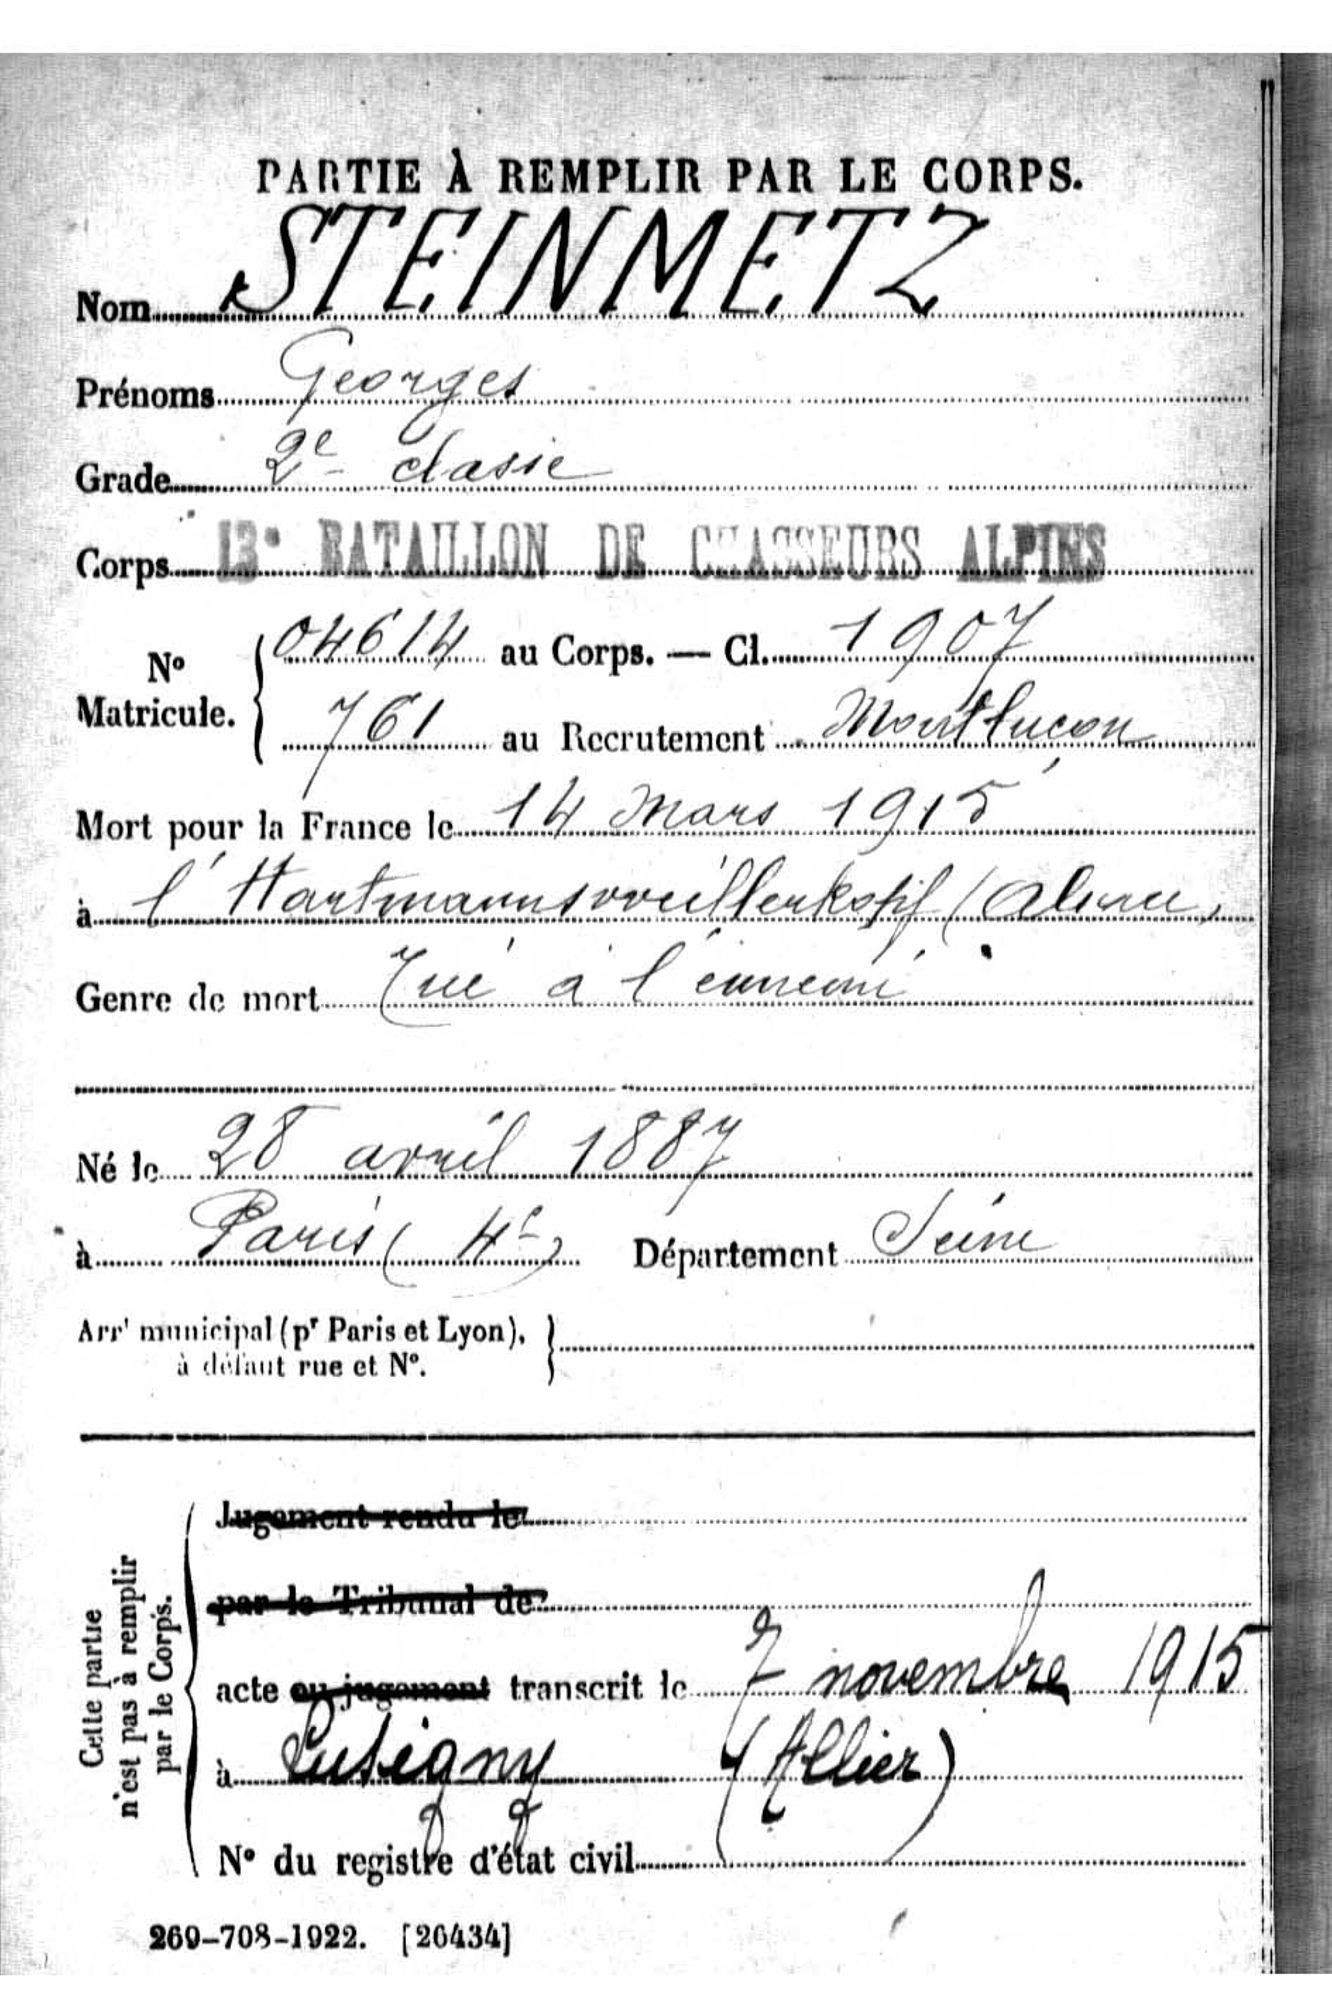 PARTIE À REMPLIR PAR LE CORPS.
Nom STEINMETZ
Prénoms Georges
Grade 2e classe
Corps 13e BATAILLON DE CHASSEURS ALPINS
No Matricule. { 04614 au Corps. — Cl. 1907
761 au Recrutement Montluçon
Mort pour la France le 14 Mars 1915
à l'Hartmannsweillerkopf (Alsace)
Genre de mort Tué à l'ennemi
Né le 28 avril 1887
à Paris (4e) Département Seine
Arrt municipal (pr Paris et Lyon),
à défaut rue et No.
Cette partie
n'est pas à remplir
par le Corps.
Jugement rendu le
par le Tribunal de
acte ou jugement transcrit le 7 novembre 1915
à Lusigny (Allier)
No du registre d'état civil
269-708-1922. [26434]